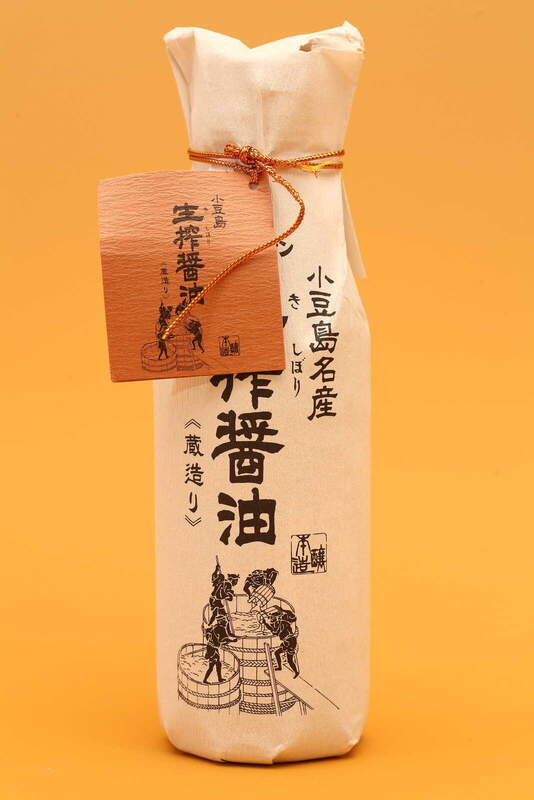 小豆島
き しぼり
生搾醤油
《蔵造り》
本醸造
小豆島名産
き しぼり
ン
搾醤油
《蔵造り》
本醸造